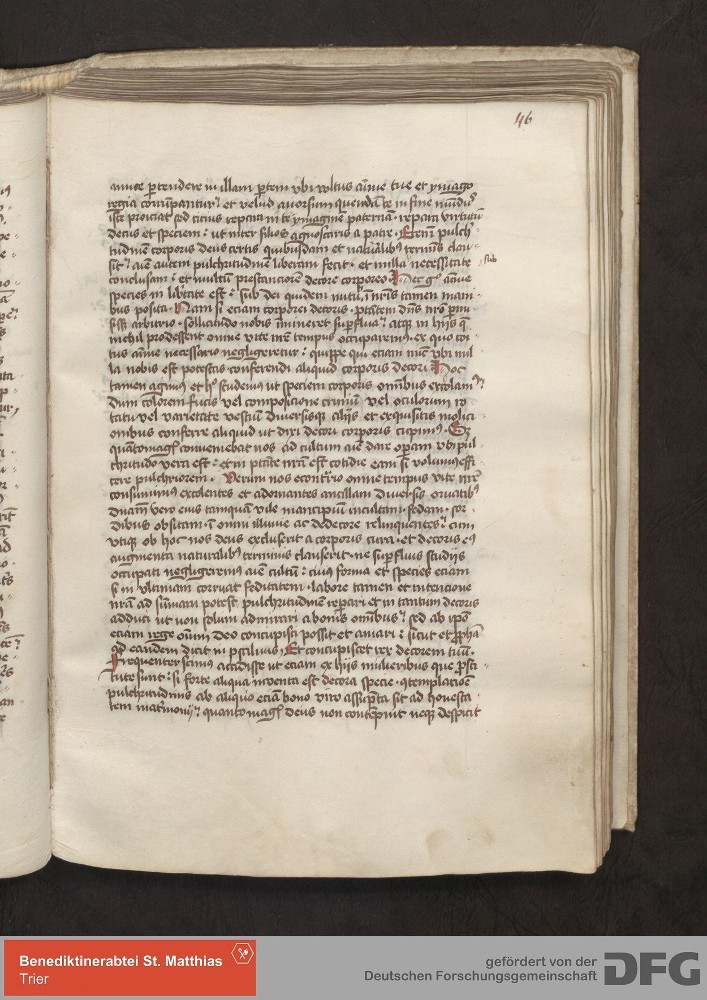 46
anime pertendere in illam partem vbi voltus anime tue et ymago
regia corrumpantur et velud auorsum quendam te in fine mundi
iste proiciat sed citius repara in te ymaginem paternam. repara virtutum
decus et speciem: ut inter filios agnoscaris a patre. Etenim pulch
tudinem corporis deus certis quibusdam et naturalibus terminis clau
sit: anime autem pulchritudinem liberam fecit. et nulla necessitate
sub
conclusam: et multum prestanciorem decore corporeo. Hec ergo anime
species in libertate est: sub dei quidem nutu, in nostris tamen mani
bus posita. Nam si eciam corporei decoris. potestatem dominus nostro permi
sisset arbitrio. sollicitudo nobis immineret superflua: atque in hijs que
nichil prodessent omne vite nostre tempus occuparemus. ex quo co
tus anime necessario negligeretur: quippe qui eciam nunc vbi nul
la nobis est potestas conferendi aliquid corporis decori. Hoc
tamen agimus et hoc studemus ut speciem corporis omnibus excolamus
dum colorem fucis vel composicione crinium vel oculorum ro
tatu vel varietate vestium diuersisque alijs et exquisitis molici
onibus conferre aliquid ut dixi decori corporis cupimus. Et
quantomagis conueniebat nos ad cultum anime dare operam vbi pul
chritudo vera est: et in potestate nostra est cotidie eam si volumus effi
cere pulchriorem. Verum nos econtrario omne tempus vite nostre
consumimus excolentes et adornantes ancillam diuersis ornatibus
dominam vero eius tamquam vile mancipium incultam. fedam. sor
dibus obsitam. in omni illuuie ac dedecore relinquentes: cum
vtique ob hoc nos deus excluserit a corporis cura. et decoris eius
augmenta naturalibus terminis clauserit. ne superfluis studijs
occupati negligeremus anime cultum: cuius forma et species eciam
si in vltimam corruat feditatem. labore tamen et intencione
nostra ad summam potest pulchritudinem reparari et in tantum decoris
adduci ut non solum admirari a bonis omnibus: sed ab ipso
eciam rege omnium deo concupisci possit et amari: sicut et propheta
ad eandem dicit in psalmis. Et concupiscet rex decorem tuum.
Frequenter scimus accidisse ut eciam ex hijs mulieribus que prosti
tute sunt: si forte aliqua inuenta est decora specie. contemplacione
pulchritudinis ab aliquo eciam bono viro assumpta sit ad honesta
tem matrimonij: quantomagis deus non contempnit neque despicit
Benediktinerabtei St. Matthias
Trier
gefördert von der
Deutschen Forschungsgemeinschaft
DFG